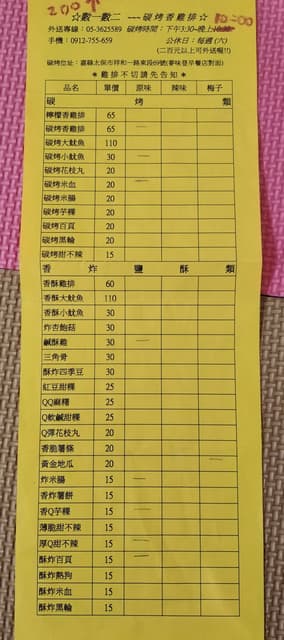 200↑
☆數一數二 ---碳烤香雞排☆ 10:00
外送專線：05-3625589 碳烤時間：下午3:30~晚上
手機：0912-755-659 公休日：每週(六)
(二百元以上可外送喔!!)
碳烤址：嘉縣太保市祥和一路東段69號(麥味登早餐店對面)
＊雞排不切請先告知＊
品名 單價 原味 辣味 梅子
碳 烤 類
檸檬香雞排 65
碳烤香雞排 65 一
碳烤大魷魚 110
碳烤小魷魚 30 一
碳烤花枝丸 20
碳烤米血 20 一
碳烤米腸 20
碳烤芋粿 20
碳烤百頁 20
碳烤黑輪 20
碳烤甜不辣 15
香 炸 鹽 酥 類
香酥雞排 60
香酥大魷魚 110
香酥小魷魚 30
炸杏鮑菇 30
鹹酥雞 30 一
三角骨 30
酥炸四季豆 30
紅豆甜粿 25
QQ麻糬 25
Q軟鹹甜粿 25
Q彈花枝丸 20
香脆薯條 20
黃金地瓜 20 一
炸米腸 15 一
香炸薯餅 15
香Q芋粿 15 一
薄脆甜不辣 15
厚Q甜不辣 15 一
酥炸百頁 15 一
酥炸熱狗 15
酥炸米血 15
酥炸黑輪 15